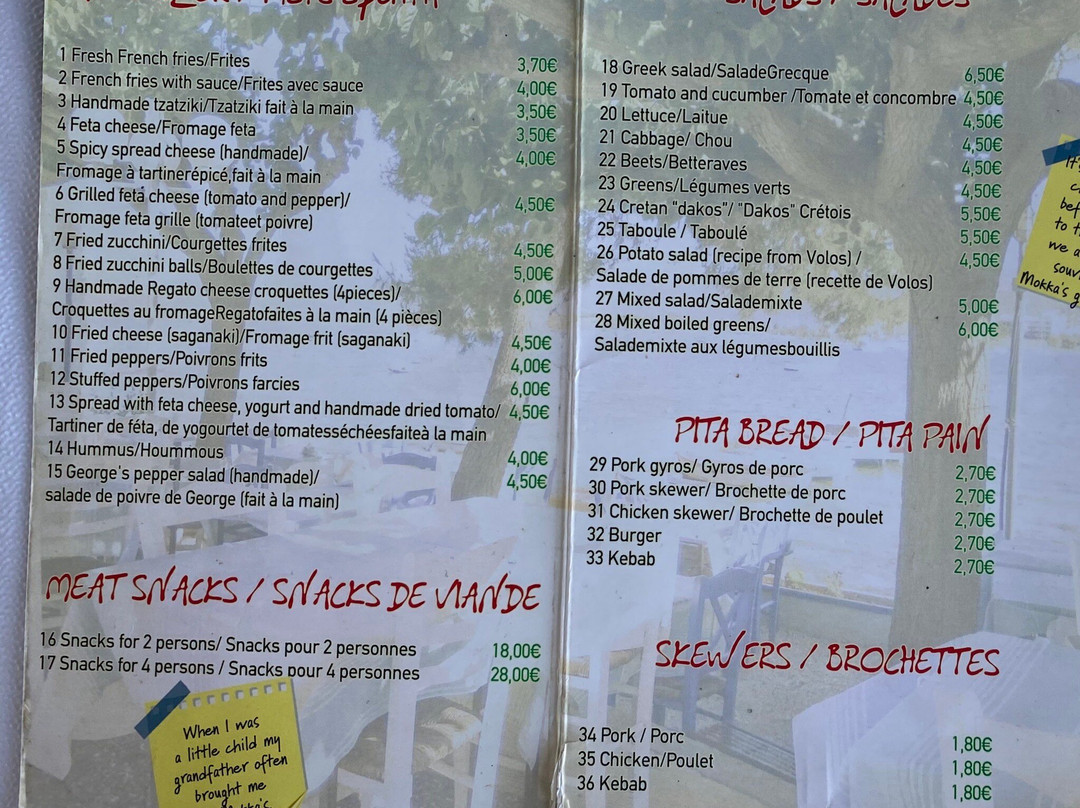 1 Fresh French fries/Frites 3,70€
2 French fries with sauce/Frites avec sauce 4,00€
3 Handmade tzatziki/Tzatziki fait à la main 3,50€
4 Feta cheese/Fromage feta 3,50€
5 Spicy spread cheese (handmade)/ 4,00€
Fromage à tartinerépicé,fait à la main
6 Grilled feta cheese (tomato and pepper)/ 4,50€
Fromage feta grille (tomateet poivre)
7 Fried zucchini/Courgettes frites 4,50€
8 Fried zucchini balls/Boulettes de courgettes 5,00€
9 Handmade Regato cheese croquettes (4pieces)/ 6,00€
Croquettes au fromageRegatofaites à la main (4 pièces)
10 Fried cheese (saganaki)/Fromage frit (saganaki) 4,50€
11 Fried peppers/Poivrons frits 4,00€
12 Stuffed peppers/Poivrons farcies 6,00€
13 Spread with feta cheese, yogurt and handmade dried tomato/ 4,50€
Tartiner de féta, de yogourtet de tomatesséchéesfaiteà la main
14 Hummus/Hoummous 4,00€
15 George's pepper salad (handmade)/ 4,50€
salade de poivre de George (fait à la main)
MEAT SNACKS / SNACKS DE VIANDE
16 Snacks for 2 persons/ Snacks pour 2 personnes 18,00€
17 Snacks for 4 persons / Snacks pour 4 personnes 28,00€
When I was
a little child my
grandfather often
brought me
SALADS / SALADES
18 Greek salad/SaladeGrecque 6,50€
19 Tomato and cucumber /Tomate et concombre 4,50€
20 Lettuce/Laitue 4,50€
21 Cabbage/ Chou 4,50€
22 Beets/Betteraves 4,50€
23 Greens/Légumes verts 4,50€
24 Cretan "dakos"/ "Dakos" Crétois 5,50€
25 Taboule / Taboulé 5,50€
26 Potato salad (recipe from Volos) / 4,50€
Salade de pommes de terre (recette de Volos)
27 Mixed salad/Salademixte 5,00€
28 Mixed boiled greens/ 6,00€
Salademixte aux légumesbouillis
PITA BREAD / PITA PAIN
29 Pork gyros/ Gyros de porc 2,70€
30 Pork skewer/ Brochette de porc 2,70€
31 Chicken skewer/ Brochette de poulet 2,70€
32 Burger 2,70€
33 Kebab 2,70€
SKEWERS / BROCHETTES
34 Pork / Porc 1,80€
35 Chicken/Poulet 1,80€
36 Kebab 1,80€
we a
souv
Mokka's g